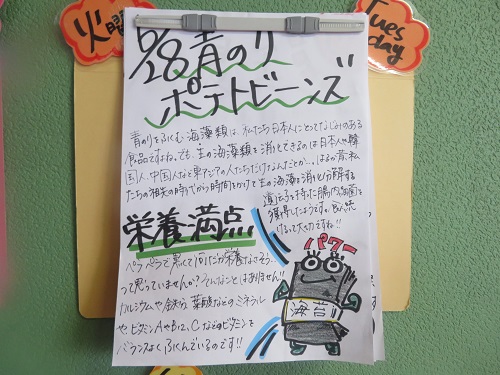 火曜
Tues
day
6/28 青のり
ポテトビーンズ
青のりをふくむ海藻類は、私たち日本人にとってなじみのある
食品ですよね。でも、生の海藻類を消化できるのは日本人や韓
国人、中国人など東アジアの人たちだけなんだとか…。はるか昔、私
たちの祖先の時代から時間をかけて生の海藻を消化分解する
遺伝子を持った腸内細菌を
獲得したようです。食べ続
けるって大切ですね!!
栄養満点
ペラペラで黒くて「何だか栄養なさそう…」
って思っていませんか?そんなことはありません!!
カルシウムや鉄、葉酸などのミネラル
やビタミンAやB12、Cなどのビタミンを
バランスよくふくんでいるのです!!
パワー
海苔